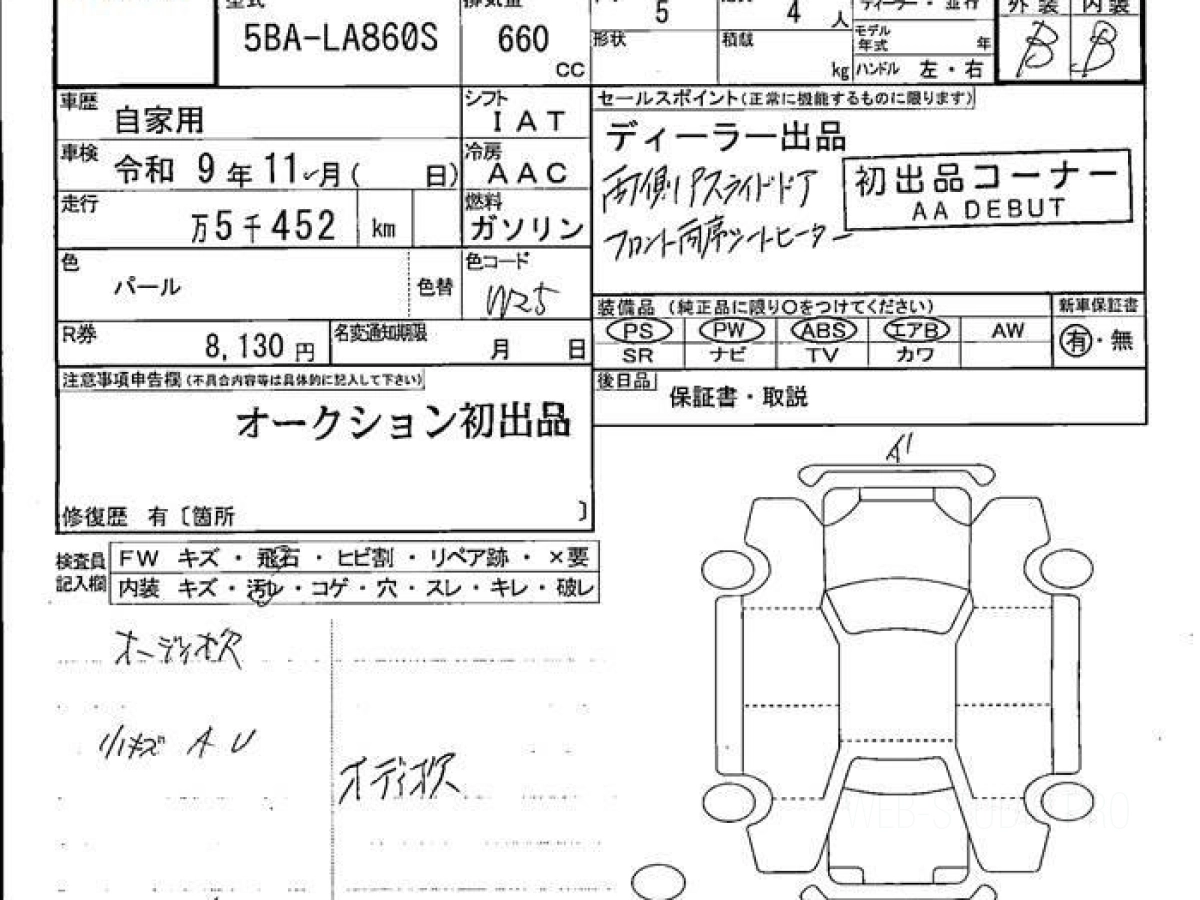 型式
5BA-LA860S
排気量
660
CC
5
4 人
形状
積載
kg
ディーラー・並行
モデル
年式
年
ハンドル 左・右
外装 内装
B B
車歴
自家用
シフト
IAT
車検
令和 9年11月( 日)
冷房
AAC
走行
万5千452 km
燃料
ガソリン
色
パール
色替
色コード
W25
R券
8,130 円
名変通知期限
月 日
セールスポイント(正常に機能するものに限ります)
ディーラー出品
両側Pスライドドア
フロント両席シートヒーター
初出品コーナー
AA DEBUT
装備品 (純正品に限り○をつけてください)
新車保証書
PS PW ABS エアB AW
SR ナビ TV カワ
有・無
後日品
保証書・取説
注意事項申告欄(不具合内容等は具体的に記入して下さい)
オークション初出品
修復歴 有〔箇所 〕
検査員
記入欄
FW キズ・飛石・ヒビ割・リペア跡・×要
内装 キズ・汚レ・コゲ・穴・スレ・キレ・破レ
A1
オーディオ欠
小キズ A U
オーディオ欠